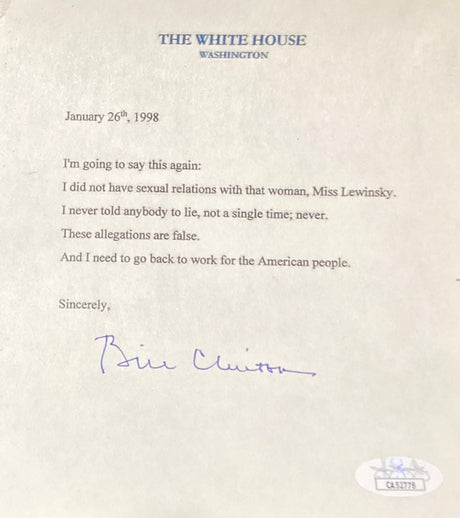 THE WHITE HOUSE
WASHINGTON
January 26th, 1998
I'm going to say this again:
I did not have sexual relations with that woman, Miss Lewinsky.
I never told anybody to lie, not a single time; never.
These allegations are false.
And I need to go back to work for the American people.
Sincerely,
Bill Clinton
CA52778